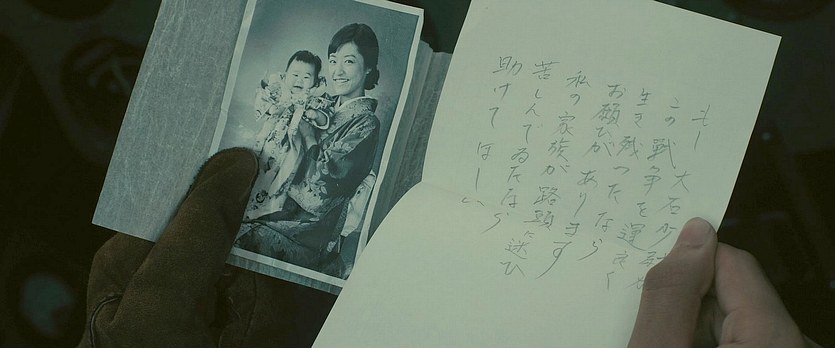 もし大石少尉が
この戦争を運良く
生き残つたなら
お願ひがあります
私の家族が路頭に迷ひ
苦しんでゐたなら
助けてほしい